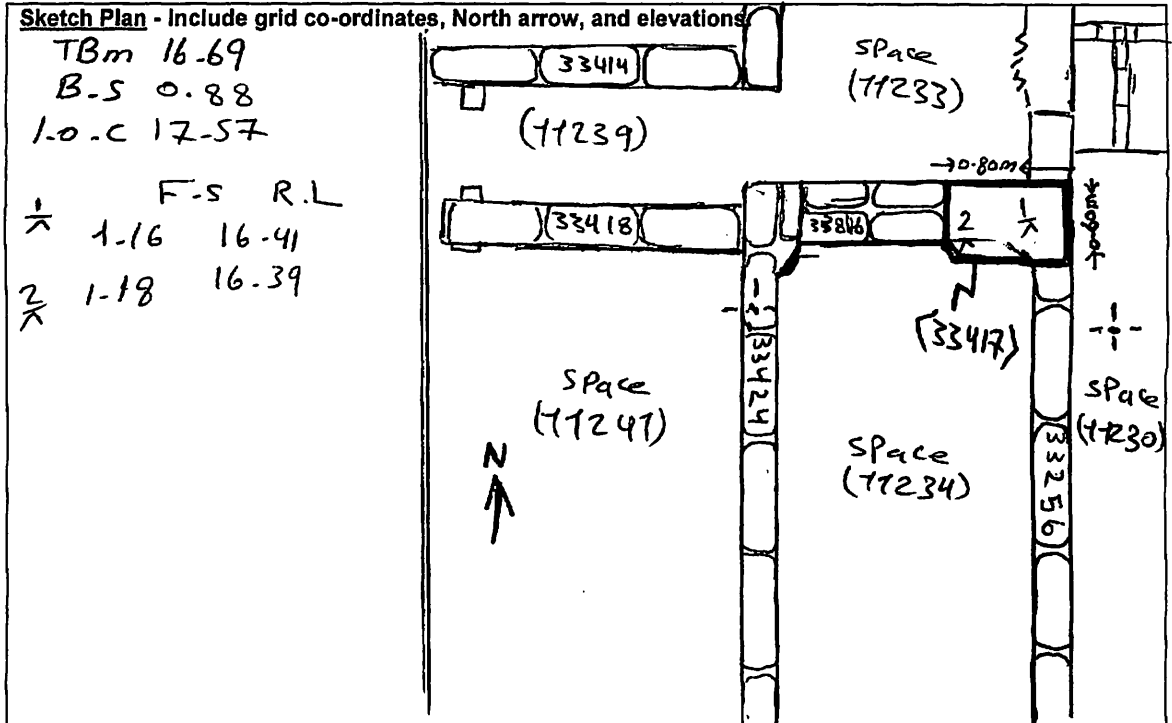 Sketch Plan - Include grid co-ordinates, North arrow, and elevations
TBm 16-69
B-S 0.88
I.o.C 17-57
F-S R.L
1 1-16 16-41
2 1-18 16-39
33414
(11239)
33418
Space
(11233)
0.80m
33846
2 1
(33417)
33424
Space
(11241)
N
Space
(11234)
33256
Space
(11230)